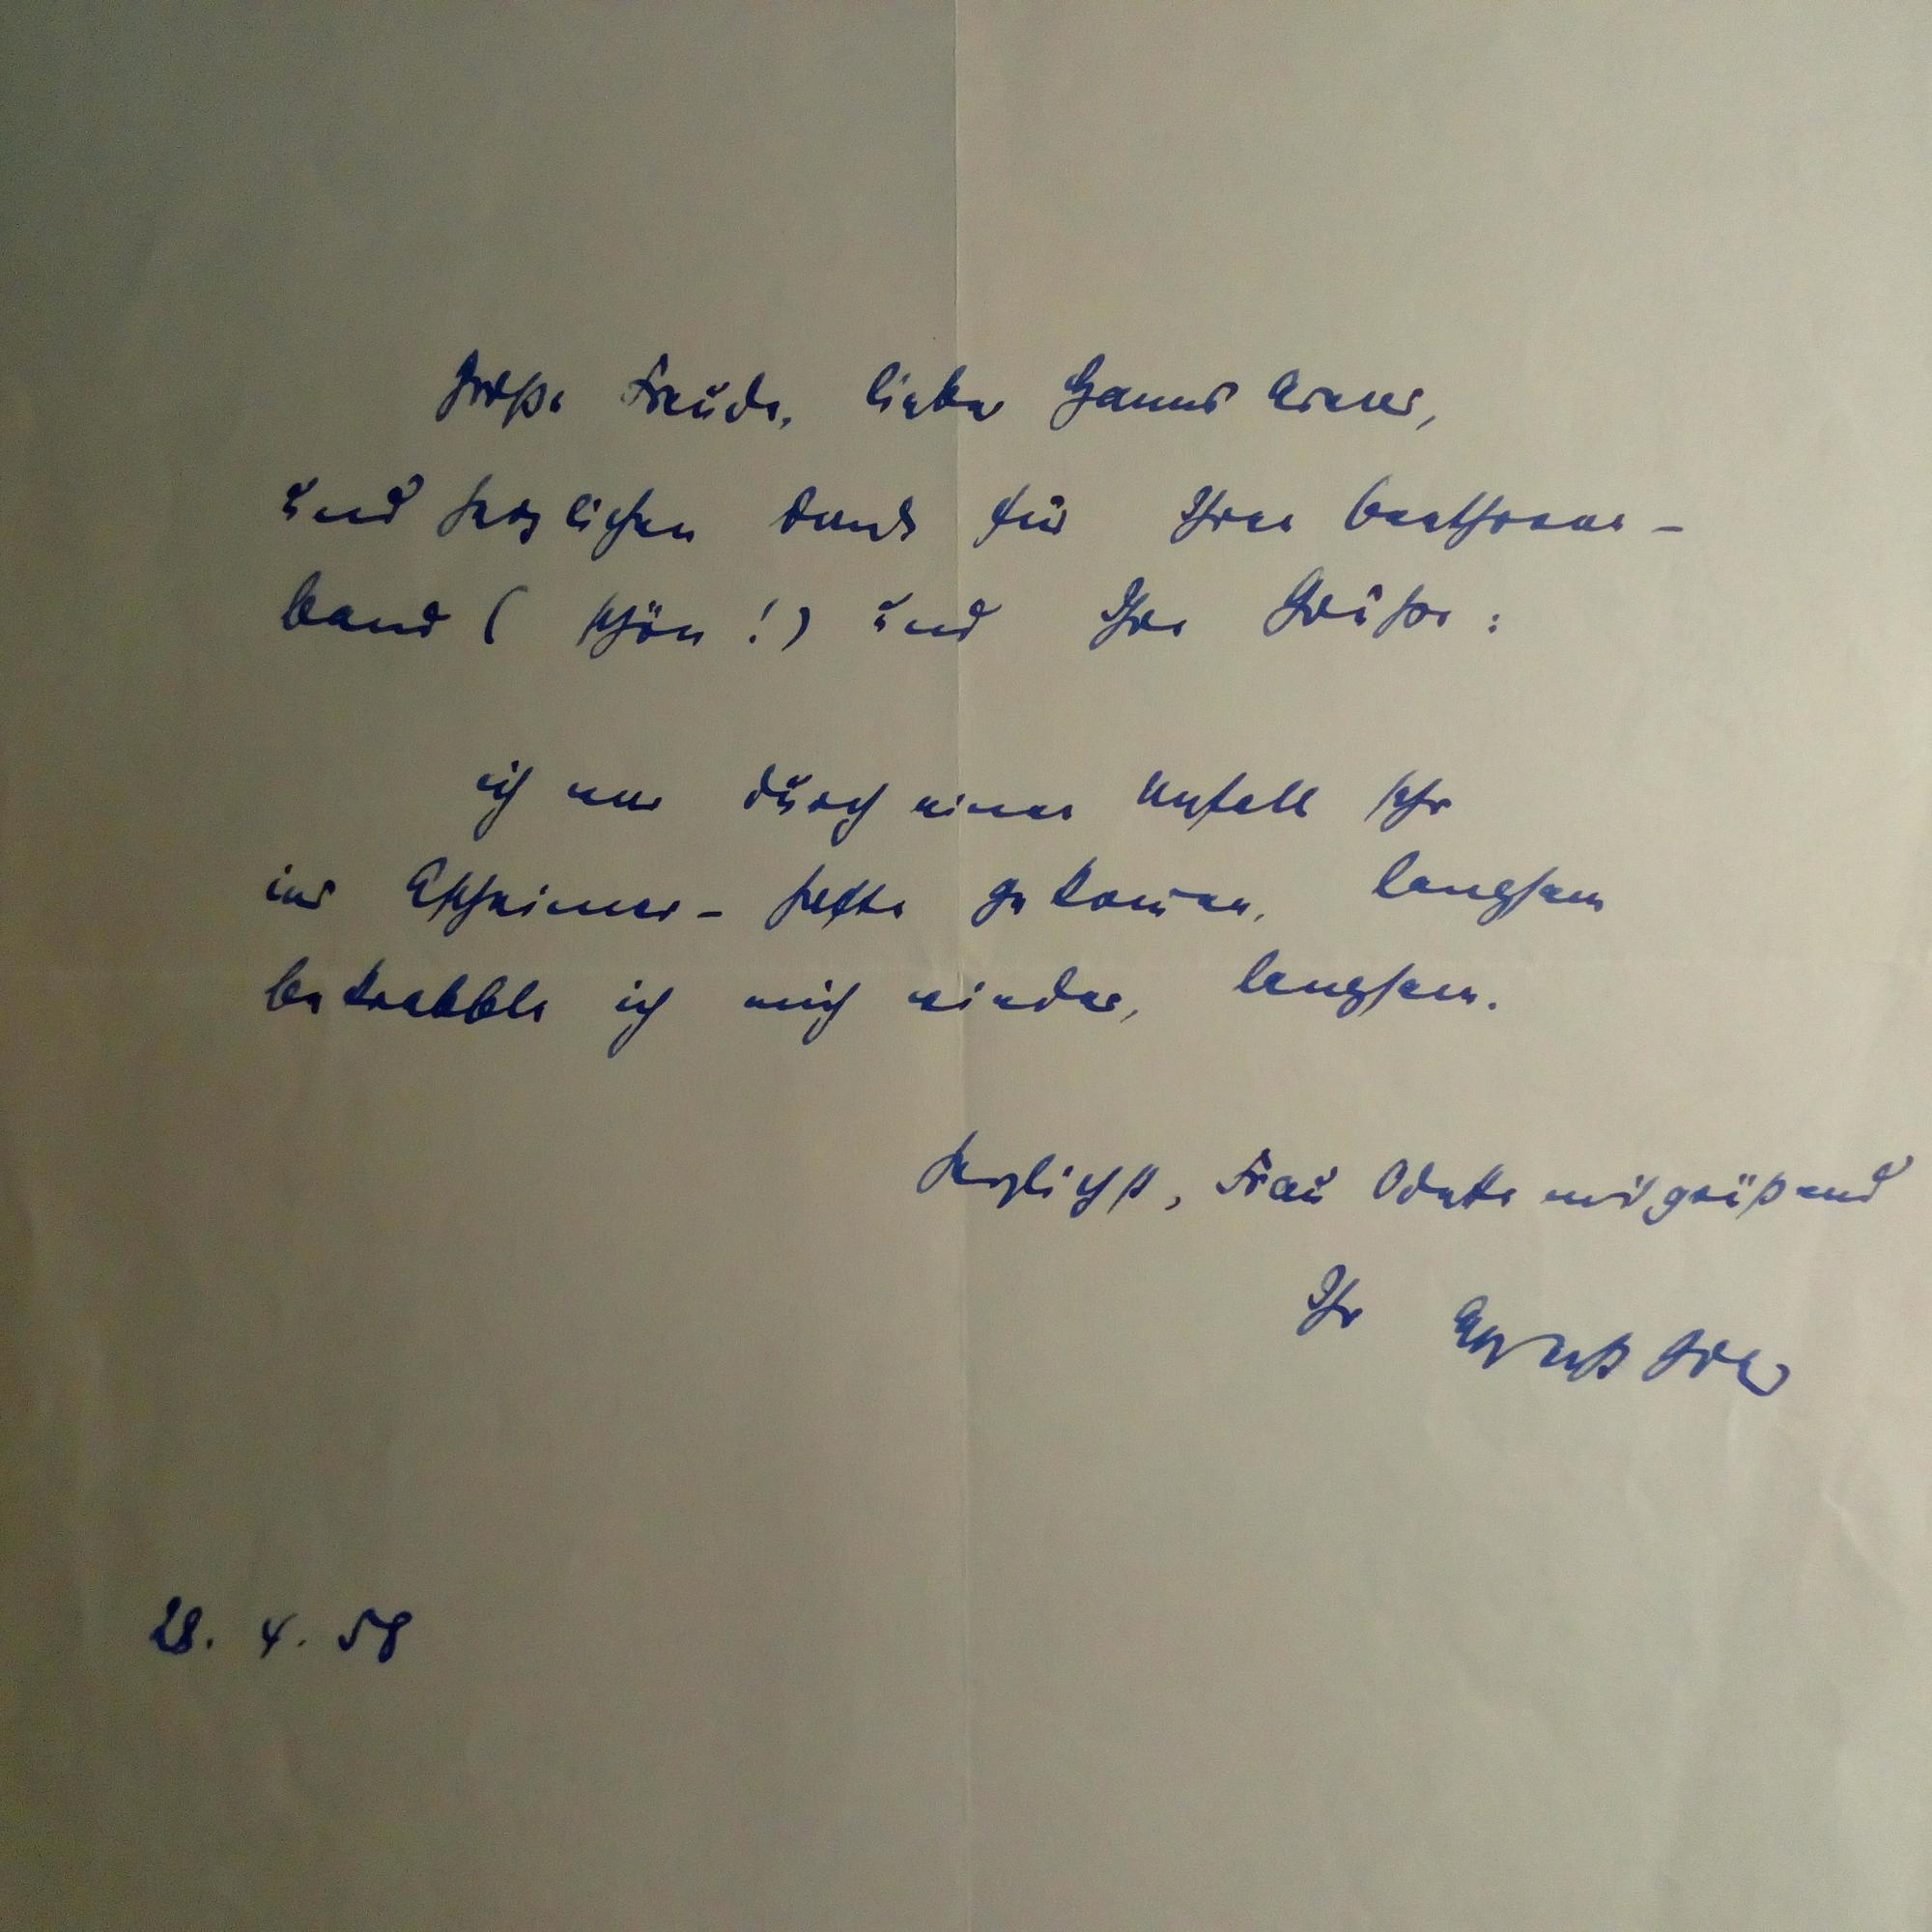 Große Freude, lieber Hanns Arens,
und herzlichen Dank für Ihren Beethoven-
band (schön!) und Ihre Grüße:
ich war durch einen Unfall sehr
ins gekommen, langsam
bekrabble ich mich wieder, langsam.
Herzlichst, Frau Odette mitgrüßend
Ihr
28. 4. 58